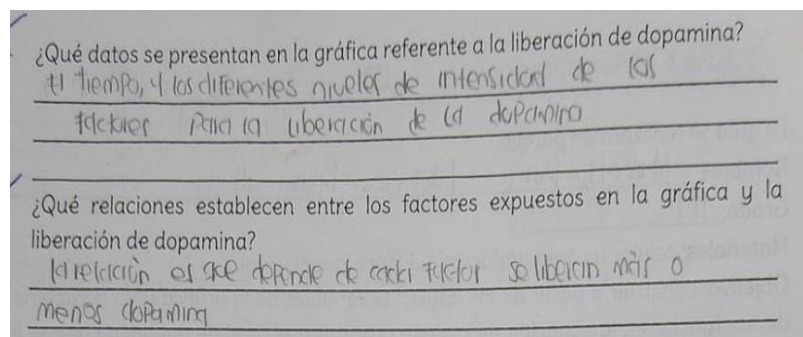 ¿Qué datos se presentan en la gráfica referente a la liberación de dopamina?
El tiempo, y los diferentes niveles de intensidad de los
factores para la liberación de la dopamina
¿Qué relaciones establecen entre los factores expuestos en la gráfica y la
liberación de dopamina?
la relación es que depende de cada factor se liberan más o
menos dopamina